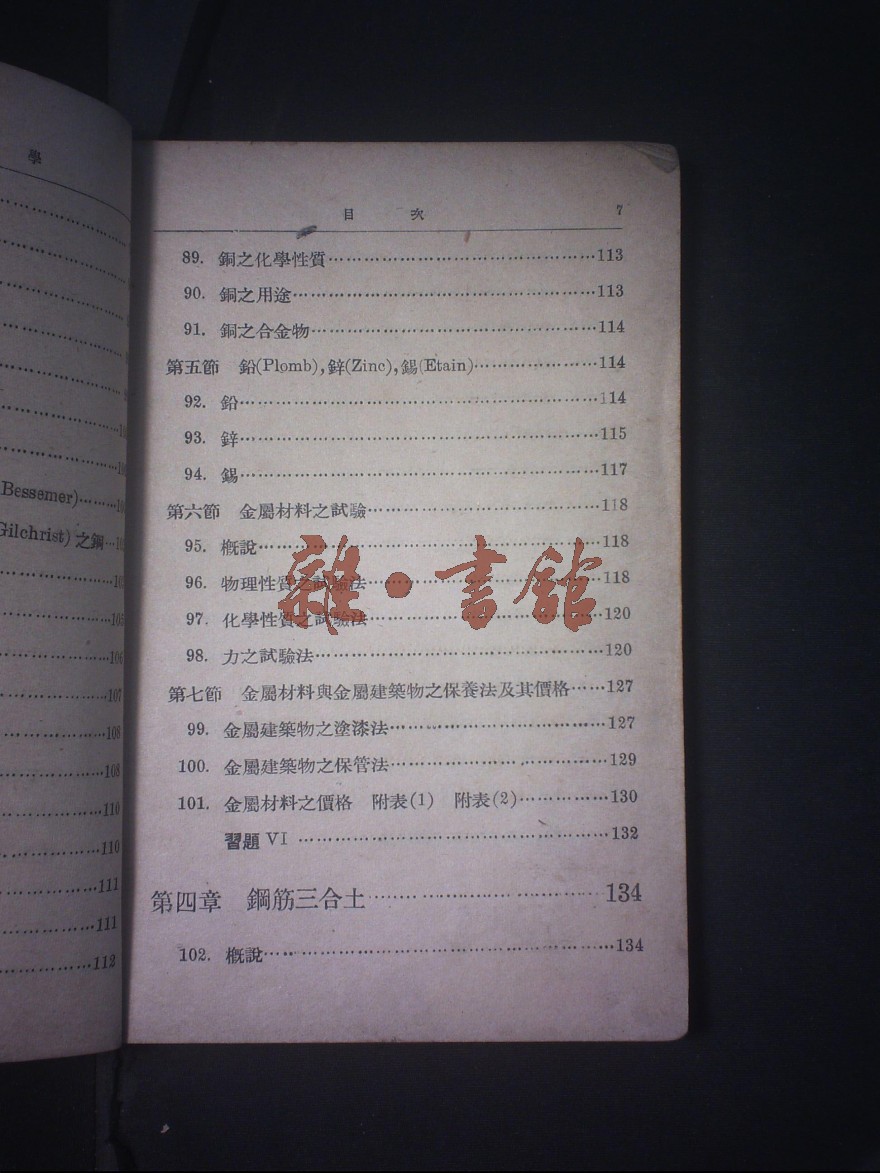 學
Bessemer)………
Gilchrist) 之鋼…
………105
………106
………107
………108
………108
………110
………110
………111
………111
………112
目　次　7
89. 銅之化學性質………113
90. 銅之用途………113
91. 銅之合金物………114
第五節　鉛(Plomb),鋅(Zinc),錫(Etain)………114
92. 鉛………114
93. 鋅………115
94. 錫………117
第六節　金屬材料之試驗………118
95. 概說………118
96. 物理性質之試驗法………118
97. 化學性質之試驗法………120
98. 力之試驗法………120
第七節　金屬材料與金屬建築物之保養法及其價格……127
99. 金屬建築物之塗漆法………127
100. 金屬建築物之保管法………129
101. 金屬材料之價格　附表(1)　附表(2)………130
習題 VI ………132
第四章　鋼筋三合土………134
102. 概說………134
雜·書館